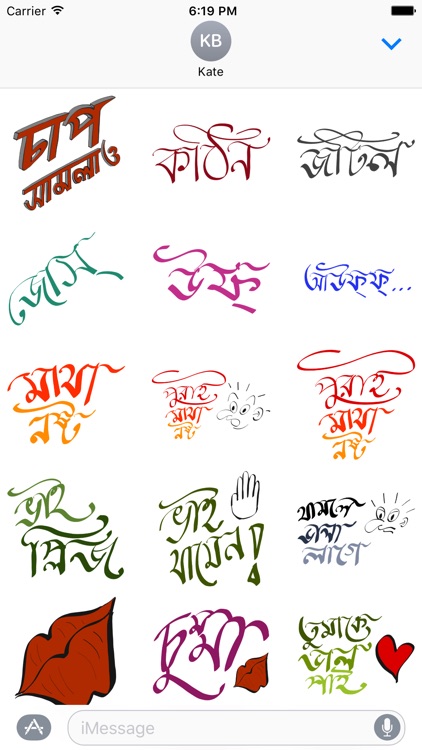 Carrier 6:19 PM
KB
Kate
চাপ
সামলাও
কঠিন
জটিল
জোস্
উফ্
আউফ্ফ্...
মাথা
নষ্ট
পুরাই
মাথা
নষ্ট
পুরাই
মাথা
নষ্ট
ভাই
প্লিজ
ভাই
থামেন!
থামলে
ভালা
লাগে
চুম্মা
তুমাকে
ভাল
পাই
iMessage